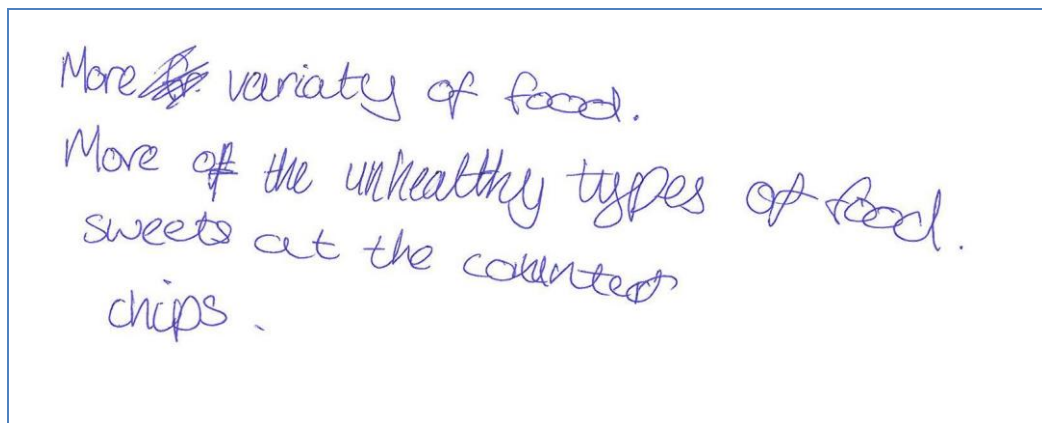 More variaty of food.
More of the unhealthy types of food.
sweets at the counter
chips.